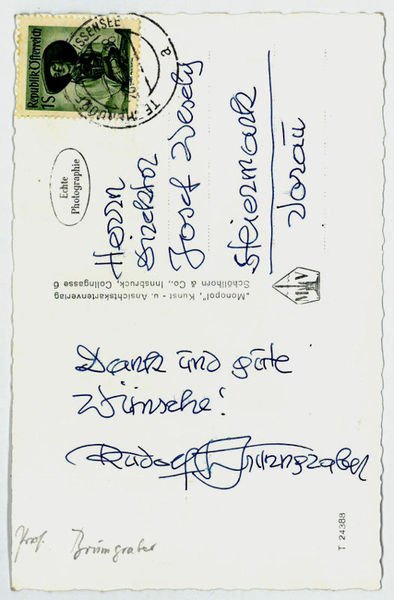 Republik Österreich
1 S
ISSENSEE
Echte
Photographie
Herrn
Direktor
Josef Wesely
Steiermark
Vorau
„Monopol", Kunst - u. Ansichtskartenverlag
Schöllhorn & Co., Innsbruck, Colingasse 6
Dank und gute
Wünsche!
Rudolf Brunngraber
T 24388
Prof. Brunngraber